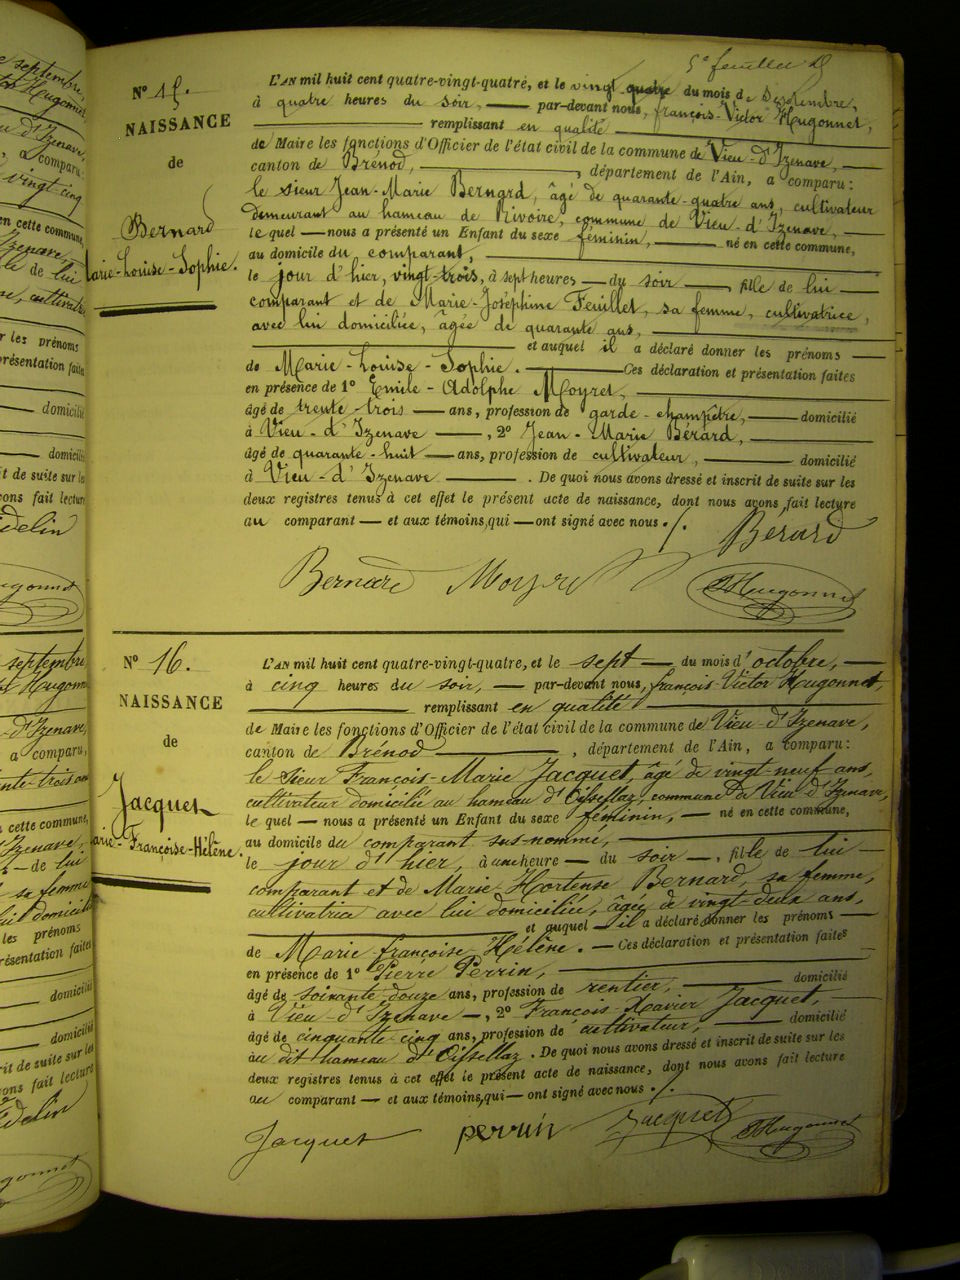 5e feuillet
N° 15.
NAISSANCE
de
Bernard
Marie-Louise-Sophie.
L'AN mil huit cent quatre-vingt-quatre, et le vingt quatre du mois de Septembre,
à quatre heures du soir, — par-devant nous, François-Victor Hugonnet,
remplissant en qualité
de Maire les fonctions d'Officier de l'état civil de la commune de Vieu-d'Izenave,
canton de Brénod, département de l'Ain, a comparu:
le sieur Jean-Marie Bernard, âgé de quarante-quatre ans, cultivateur
demeurant au hameau de Rivoire, commune de Vieu-d'Izenave,
le quel — nous a présenté un Enfant du sexe féminin, né en cette commune,
au domicile du comparant,
le jour d'hier, vingt-trois, à sept heures — du soir —, fille de lui —
comparant et de Marie-Joséphine Feuillet, sa femme, cultivatrice,
avec lui domiciliée, âgée de quarante ans,
et auquel il a déclaré donner les prénoms —
de Marie-Louise-Sophie. — Ces déclaration et présentation faites
en présence de 1° Emile-Adolphe Moyret,
âgé de trente-trois — ans, profession de garde-champêtre, — domicilié
à Vieu-d'Izenave —, 2° Jean-Marie Bérard,
âgé de quarante-huit — ans, profession de cultivateur, — domicilié
à Vieu-d'Izenave — . De quoi nous avons dressé et inscrit de suite sur les
deux registres tenus à cet effet le présent acte de naissance, dont nous avons fait lecture
au comparant — et aux témoins, qui — ont signé avec nous ./.
Bérard
Bernard Moyret Hugonnet
N° 16.
NAISSANCE
de
Jacquet
Marie-Françoise-Hélène.
L'AN mil huit cent quatre-vingt-quatre, et le sept — du mois d'octobre, —
à cinq heures du soir, — par-devant nous, François-Victor Hugonnet,
remplissant en qualité
de Maire les fonctions d'Officier de l'état civil de la commune de Vieu-d'Izenave,
canton de Brénod, département de l'Ain, a comparu:
le sieur François-Marie Jacquet, âgé de vingt-neuf ans,
cultivateur domicilié au hameau d'Oisselaz, commune de Vieu-d'Izenave,
le quel — nous a présenté un Enfant du sexe féminin, — né en cette commune,
au domicile du comparant sus-nommé,
le jour d'hier, à une heure — du soir —, fille de lui —
comparant et de Marie-Hortense Bernard, sa femme,
cultivatrice avec lui domiciliée, âgée de vingt-deux ans,
et auquel — il a déclaré donner les prénoms —
de Marie-Françoise-Hélène. — Ces déclaration et présentation faites
en présence de 1° Pierre Perrin,
âgé de soixante-douze ans, profession de rentier, — domicilié
à Vieu-d'Izenave —, 2° François-Xavier Jacquet, —
âgé de cinquante-cinq ans, profession de cultivateur, — domicilié
au dit hameau d'Oisselaz . De quoi nous avons dressé et inscrit de suite sur les
deux registres tenus à cet effet le présent acte de naissance, dont nous avons fait lecture
au comparant — et aux témoins, qui — ont signé avec nous ./.
Jacquet perrin Jacquet Hugonnet